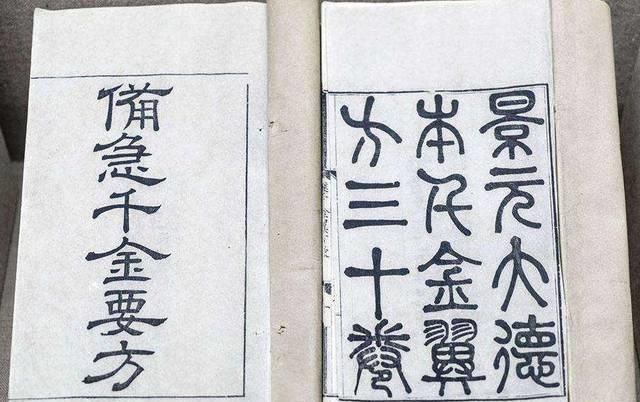 景元大德
本千金翼
方三十卷
備急千金要方